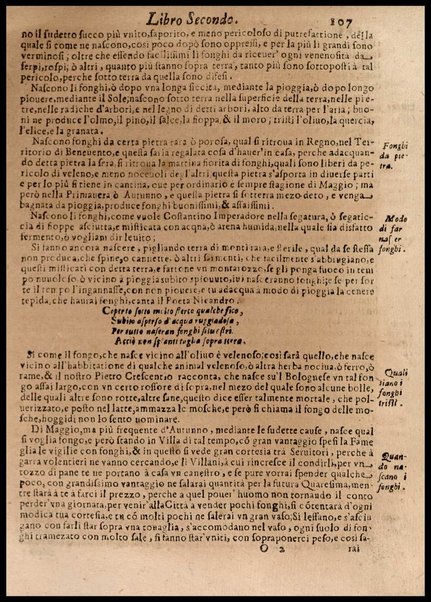 Libro Secondo. 107
no il sudetto succo più vnito, saporito, e meno pericoloso di putrefattione, della
quale si come ne nascono, così poco dopò sono oppressi, e per la più li grandi sono
vermosi; oltre che essendo facilissimi li fonghi da riceuer' ogni venenosità da
serpi, rospi, ò altri, quanto più stanno sopra terra, tanto più sono sottoposti à tal
pericolo, perche sotto terra da quella sono difesi.
Nascono li fonghi, dopò vna longa siccita, mediante la pioggia, ò dopo longo
piouere, mediante il Sole, nascono sotto terra nella superficie della terra, nelle pie-
tre, nelle radiche d'arbori, e nel legno di detti arbori, alto da terra per l'aria; buo-
ni ne produce l'olmo, il pino, il salce, la fioppa, & il moro; tristi l'oliuo, la quercia,
l'elice, e la granata.
Nascono fonghi da certa pietra rara ò porosa, qual si ritroua in Regno, nel Ter-
ritorio di Beneuento, e questa fu la regalata cosa d'hauer' in casa, perche adacquan-
do detta pietra la sera, si ritroua la mattina fiorita di fonghi, quali sono liberi da pe-
ricolo di veleno, e meno noceuoli de gl'altri questa pietra s'asporta in diuerse parti
e per lo più si tiene in cantina, oue per ordinario è sempre stagione di Maggio; ma
però nella Primauera ò Autunno, e questa pietra si sotterra mezo deto, e venga
bagnata da pioggia, produce fonghi buonissimi, & assaissimi.
Fonghi
da pie
tra.
Nascono li fonghi, come vuole Costantino Imperadore nella segatura, ò segatic-
cia di fioppe asciutta, e misticata con acqua, ò arena humida, nella quale sia disfatto
fermento, ò vogliam dir leuito;
Si fanno ancora nascere, pigliando terra di monti rara, e sterile, qual da se stessa
non produca, che spine, ò cannette, ò altri sarmenti, che facilmente s'abbrugiano, e
questi misticati con detta terra, e fattone vn montarozzo, se gli ponga fuoco in tem
po nuuoloso, ò vicino à pioggia subito spiouuto, iui nasceranno fonghi, se per sor
te il tempo l'ingannasse, con non piouere, e tu adacqua à modo di pioggia la cenere
tepida, che hauerai fonghi, canta il Poeta Nicandro.
Modo
di far
nascer
fonghi.
Coperto sotto molto sterco qualche fico,
Subito asperso d'acqua ruggiadosa,
Per tutto nasceran fonghi siluestri.
Acciò non spianti taglia sopra terra.
Si come il fongo, che nasce vicino all'oliuo è velenoso, così sarà quello, che nasce
vicino all'habbitatione di qualche animal velenoso, ò altra herba nociua, ò ferro, ò
rame, & il nostro Pietro Crescentio racconta, che nasce sul Bolognese vn tal fon-
go assai largo, con vn certo rossore di sopra, nel mezo del quale sono alcune bolle,
delle quali altre sono rotte, altre sane, questo dice esser talmente mortale, che pol-
uerizzato, e posto nel latte, ammazza le mosche, e però si chiama il fongo delle mo-
sche, hoggidì non lo sento nominare.
Quali
siano i
fonghi
tristi.
Di Maggio, ma più frequente d'Autunno, mediante le sudette cause, nasce qual
si voglia fongo, e però stando in Villa di tal tempo, cõ gran vantaggio spesi la Fame
glia le vigilie con fonghi, & in questo si vede gran cortesia tra Seruitori, perche à
garra volontieri ne vanno cercando, e li Villani, à cui rincresce il condirli, per vn
tozzo di pane te ne portano à casa vn canestro, e se pure vorrai spender qualche
poco, con grandissimo vantaggio ne salarai quantità per la futura Quaresima, men-
tre starà à te à farci il prezzo, perche à quel pouer' huomo non tornando il conto
perder' vna giornata, per venir' alla Città à vender pochi fonghi, si cõtentara d'ogni
modica tua cortesia, e tu cõ molti pochi ne salerai vn gran vaso; Si lessano, e s'asciu
gano con farli star sopra vna touaglia, s'accomodano nel vaso, ogni suolo di fon-
ghi tramezato con molto sale, si fanno star vniti, con soprapponerci peso, e così sa-
Quan
do na-
scano i
fonghi.
O 2 rai